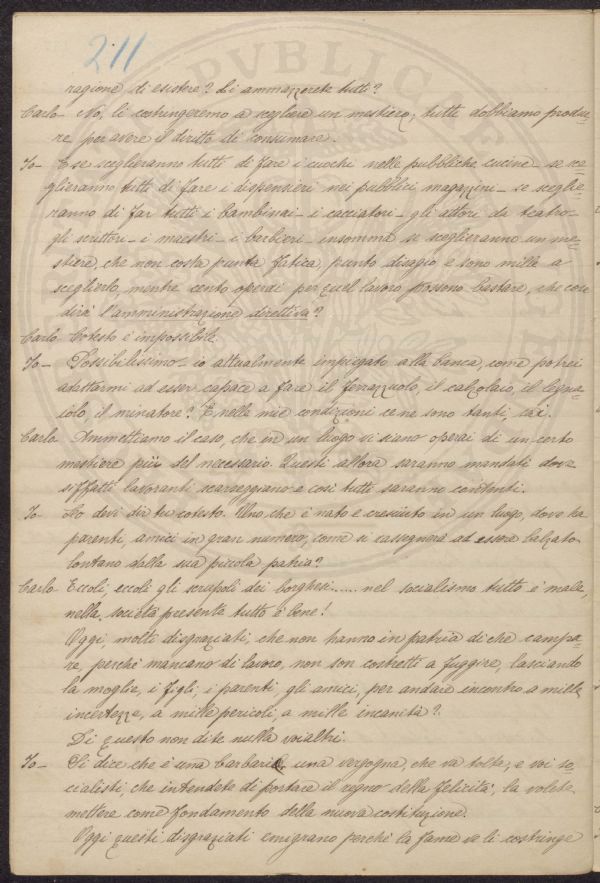 211
ragione di esistere? Li ammazzerete tutti?
Carlo - No, li costringeremo a scegliere un mestiere; tutti dobbiamo produr-
re per avere il diritto di consumare.
Io - E se sceglieranno tutti di fare i cuochi nelle pubbliche cucine - se sce-
glieranno tutti di fare i dispensieri nei pubblici magazzini - se sceglie-
ranno di far tutti i bambinai - i cacciatori - gli attori da teatro -
gli scrittori - i maestri - i barbieri - insomma se sceglieranno un me-
stiere, che non costa punta fatica, punto disagio e sono mille a
sceglierlo, mentre cento operai per quel lavoro possono bastare, che cosa
dirà l'amministrazione direttiva?
Carlo Cotesto è impossibile.
Io - Possibilissimo - io attualmente impiegato alla banca, come potrei
adattarmi ad esser capace a fare il terrazzuolo, il calzolaio, il legna-
iolo, il minatore? E nelle mie condizioni ce ne sono tanti, sai.
Carlo - Ammettiamo il caso, che in un luogo vi siano operai di un certo
mestiere più del necessario. Questi allora saranno mandati dove
siffatti lavoranti scarseggiano e così tutti saranno contenti.
Io - Lo devi dir tu cotesto. Uno che è nato e cresciuto in un luogo, dove ha
parenti, amici in gran numero, come si rassegnerà ad essere balzato
lontano dalla sua piccola patria?
Carlo - Eccoli, eccoli gli scrupoli dei borghesi..... nel socialismo tutto è male,
nella società presente tutto è bene!
Oggi, molti disgraziati, che non hanno in patria di che campa-
re, perchè mancano di lavoro, non son costretti a fuggire, lasciando
la moglie, i figli, i parenti, gli amici, per andare incontro a mille
incertezze, a mille pericoli, a mille incanità?
Di questo non dite nulla voialtri.
Io - Si dice che è una barbarie una vergogna, che va tolta; e voi so-
cialisti, che intendete di portare il regno della felicità, la volete
mettere come fondamento della nuova costituzione.
Oggi questi disgraziati emigrano perchè la fame ve li costringe